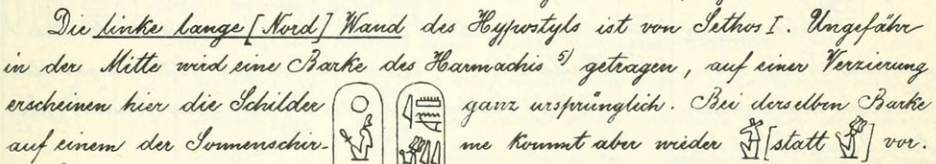 Die linke lange [Nord] Wand des Hypostyls ist von Sethos I. Ungefähr
in der Mitte wird eine Barke des Harmachis 5) getragen, auf einer Verzierung
erscheinen hier die Schilder ganz ursprünglich. Bei derselben Barke
auf einem der Sonnenschir- me kommt aber wieder [statt ] vor.